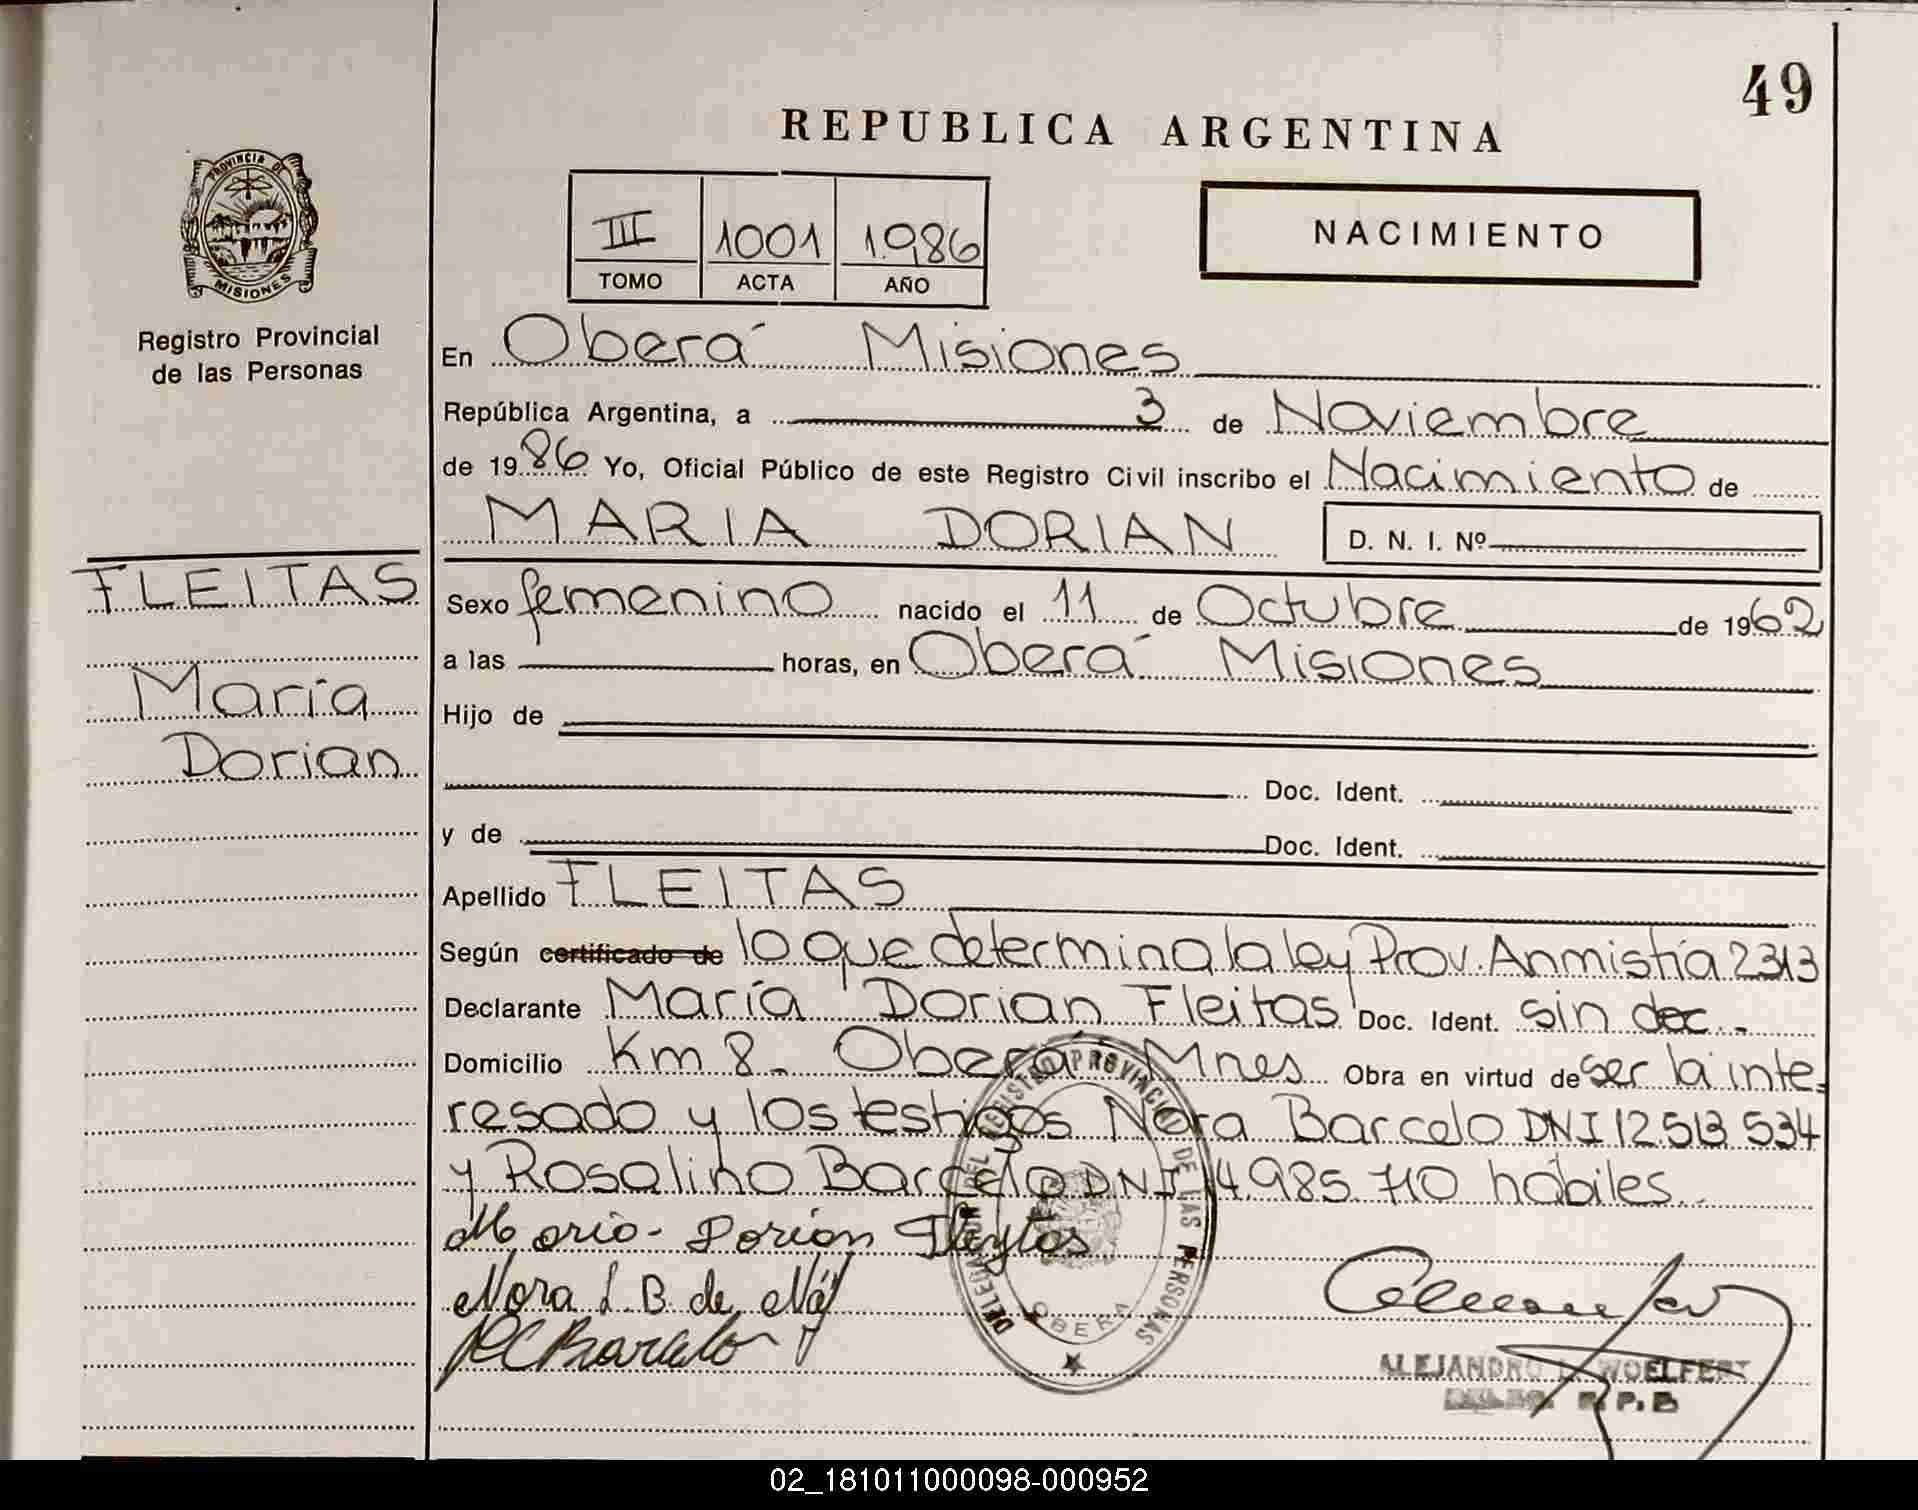 49
REPUBLICA ARGENTINA
PROVINCIA DE
MISIONES
Registro Provincial
de las Personas
III 1001 1.986
TOMO ACTA AÑO
NACIMIENTO
En Oberá Misiones
República Argentina, a 3 de Noviembre
de 1986 Yo, Oficial Público de este Registro Civil inscribo el Nacimiento de
MARIA DORIAN D. N. I. Nº
FLEITAS
María
Dorian
Sexo femenino nacido el 11 de Octubre de 1962
a las horas, en Oberá Misiones
Hijo de
Doc. Ident.
y de Doc. Ident.
Apellido FLEITAS
Según certificado de lo que determina la ley Prov. Anmistía 2313
Declarante María Dorian Fleitas Doc. Ident. sin doc.-
Domicilio Km 8. Oberá Mnes Obra en virtud de ser la inte-
resado y los testigos Nora Barcelo DNI 12.513.534
y Rosalino Barcelo DNI 14.985.710 hábiles.
Maria Dorian Fleytas
Nora L. B. de
Barcelo
DELEGACION DEL REGISTRO PROVINCIAL DE LAS PERSONAS
OBERA
ALEJANDRO WOELFERT
R.P.B
02_181011000098-000952